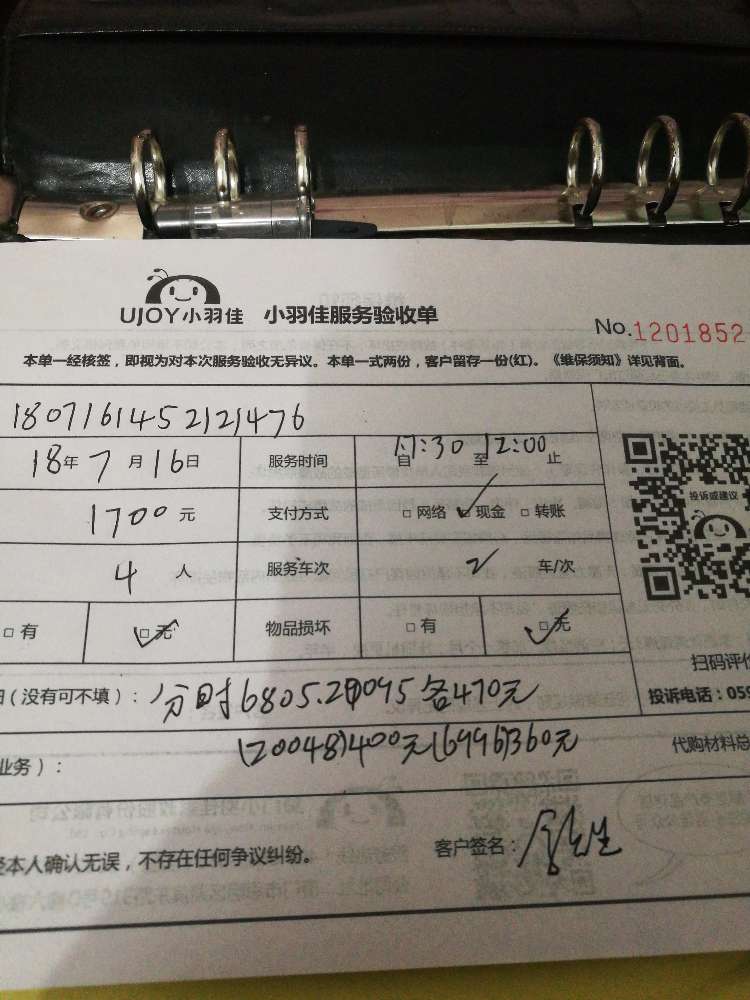 UJOY小羽佳 小羽佳服务验收单
No.1201852
本单一经核签，即视为对本次服务验收无异议。本单一式两份，客户留存一份(红)。《维保须知》详见背面。
1807161452121476
18年7月16日 服务时间 自17:30至12:00止
1700元 支付方式 □网络 □现金 □转账
投诉或建议
4人 服务车次 2 车/次
□有 □无 物品损坏 □有 □无
扫码评价
(没有可不填)：分时6805.21095各470元
投诉电话：059
(20048)400元(6996)360元
业务)： 代购材料总
本人确认无误，不存在任何争议纠纷。 客户签名：